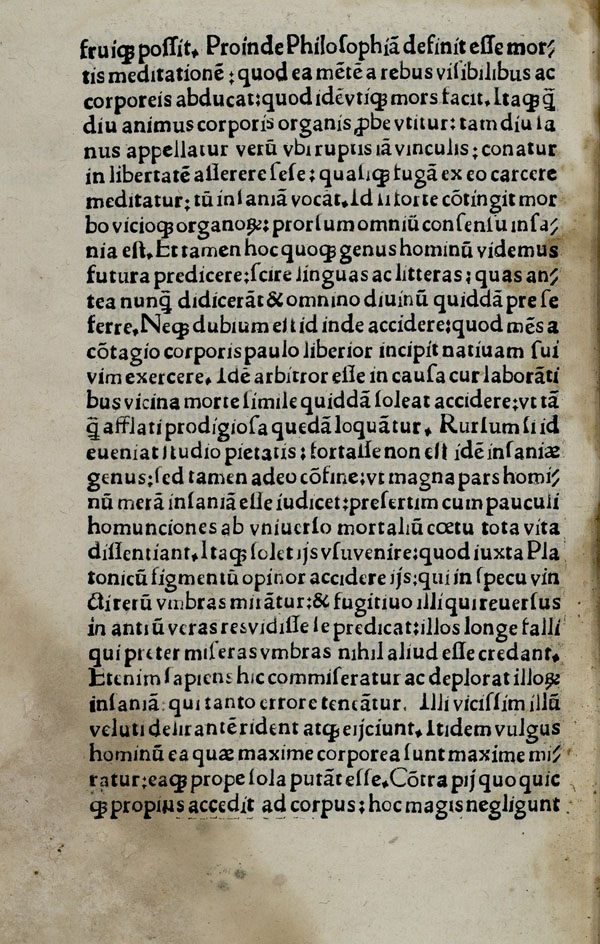 fruiqꝫ poſſit. Proinde Philoſophiā definit eſſe mor⸗
tis meditationē: quod ea mētē a rebus viſibilibus ac
corporeis abducat: quod idē vtiqꝫ mors facit. Itaqꝫ q̄
diu animus corporis organis ꝓbe vtitur: tam diu ſa
nus appellatur verū vbi ruptis iā vinculis: conatur
in libertatē aſſerere ſeſe: quaſiqꝫ fugā ex eo carcere
meditatur: tū inſaniā vocāt. Id ſi forte cōtingit mor
bo vicioqꝫ organoꝝ: prorſum omniū conſenſu inſa⸗
nia eſt. Et tamen hoc quoqꝫ genus hominū videmus
futura predicere: ſcire linguas ac litteras: quas an⸗
tea nunq̄ didicerāt & omnino diuinū quiddā pre ſe
ferre. Neqꝫ dubium eſt id inde accidere: quod mēs a
cōtagio corporis paulo liberior incipit natiuam ſui
vim exercere. Idē arbitror eſſe in cauſa cur laborāti
bus vicina morte ſimile quiddā ſoleat accidere: vt tā
q̄ afflati prodigioſa quedā loquātur. Rurſum ſi id
eueniat ſtudio pietatis: fortaſſe non eſt idē inſaniæ
genus: ſed tamen adeo cōfine: vt magna pars homi⸗
nū merā inſaniā eſſe iudicet: preſertim cum pauculi
homunciones ab vniuerſo mortaliū cœtu tota vita
diſſentiant. Itaqꝫ ſolet ijs vſuvenire: quod iuxta Pla
tonicū figmentū opinor accidere ijs: qui in ſpecu vin
cti rerū vmbras mirātur: & fugitiuo illi qui reuerſus
in antrū veras res vidiſſe ſe predicat: illos longe falli
qui preter miſeras vmbras nihil aliud eſſe credant.
Etenim ſapiens hic commiſeratur ac deplorat illoꝝ
inſaniā: qui tanto errore teneātur. Illi viciſſim illū
veluti delirantē rident atqꝫ eijciunt. Itidem vulgus
hominū ea quæ maxime corporea ſunt maxime mi⸗
ratur: eaqꝫ prope ſola putāt eſſe. Cōtra pij quo quic
qꝫ propius accedit ad corpus: hoc magis negligunt